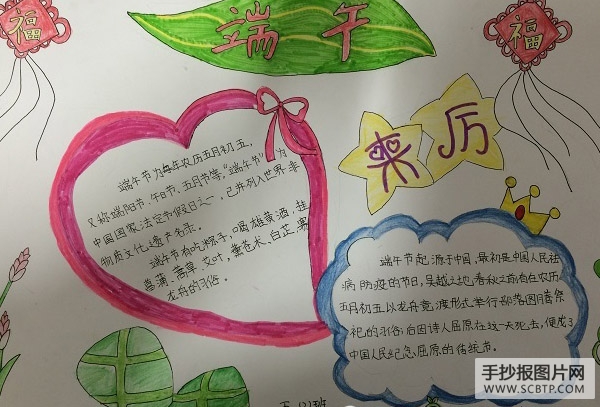 福
端午
福
来历
端午节为每年农历五月初五,
又称端阳节、午日节、五月节等,"端午节"为
中国国家法定节假日之一,已并列入世界非
物质文化遗产名录。
端午节有吃粽子,喝雄黄酒,挂
菖蒲、蒿草、艾叶,薰苍术、白芷,赛
龙舟的习俗。
端午节起源于中国,最初是中国人民祛
病防疫的节日,吴越之地春秋之前有在农历
五月初五以龙舟竞渡形式举行部落图腾祭
祀的习俗;后因诗人屈原在这一天死去,便成了
中国人民纪念屈原的传统节。
手抄报图片网
WWW.SCBTP.COM